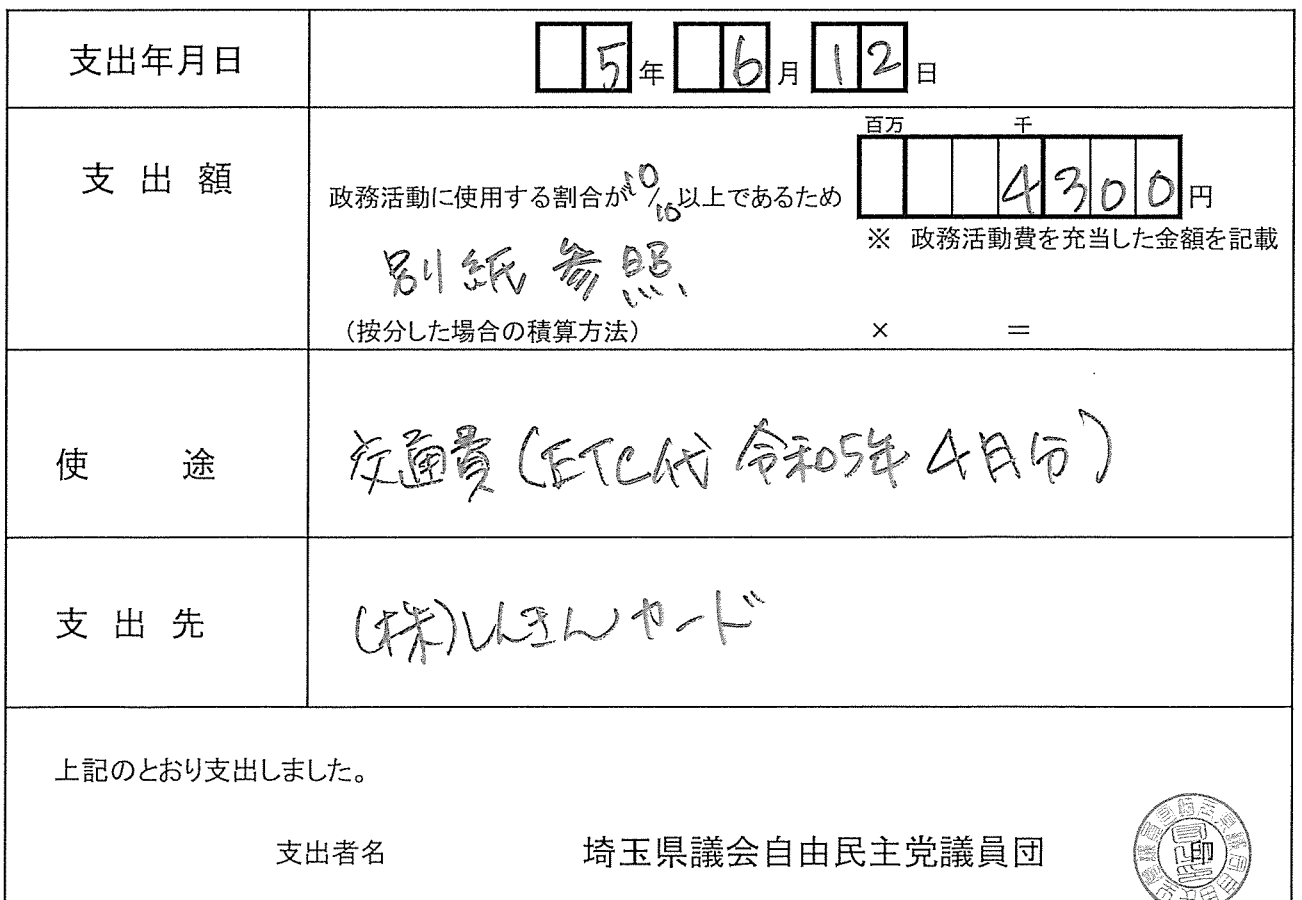 支出年月日
5年 6月 12日
百万 千
支出額
政務活動に使用する割合が10/10以上であるため 4300円
※ 政務活動費を充当した金額を記載
別紙参照
(按分した場合の積算方法) × =
使途
交通費(ETC代 令和05年4月分)
支出先
(株)しんきんカード
上記のとおり支出しました。
支出者名 埼玉県議会自由民主党議員団
印